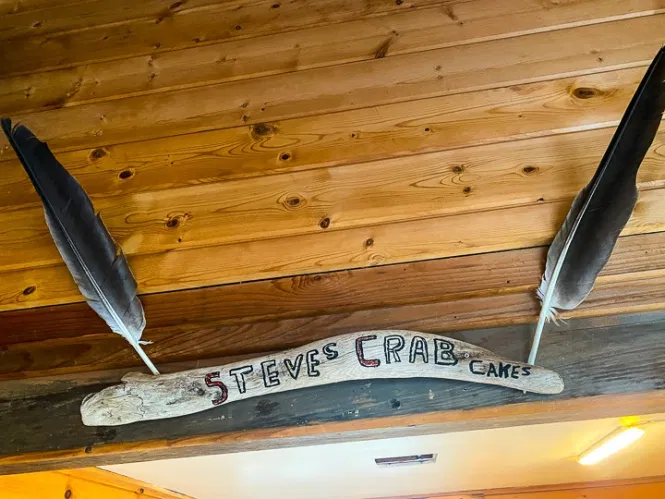 STEVES CRAB CAKES